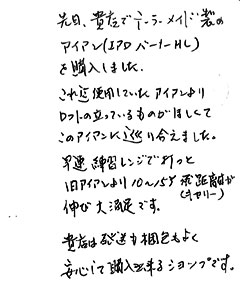 先日、貴店でテーラーメイド製の
アイアン(IPO バーナーHL)
を購入しました。
これ迄使用していたアイアンより
ロフトの立っているものがほしくて
このアイアンに巡り合えました。
早速練習レンジで打つと
旧アイアンより10〜15Y飛距離が
(キャリー)
伸び大満足です。
貴店は発送も梱包もよく
安心して購入出来るショップです。